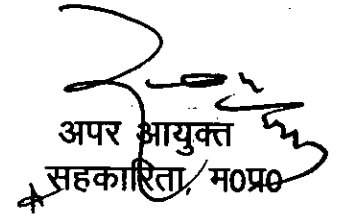 अपर आयुक्त
सहकारिता, म०प्र०